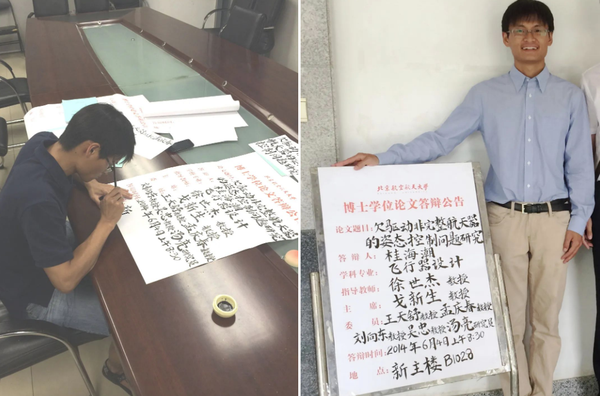 博士学位论文答辩公告
飞行器设计
北京航空航天大学
博士学位论文答辩公告
论文题目:欠驱动非完整航天器
的姿态控制问题研究
答辩人:桂海潮
学科专业:飞行器设计
指导教师:徐世杰 教授
主席:戈新生 教授
委员:王天舒教授孟庆春教授
刘向东教授吴忠教授汤亮研究员
答辩时间:2014年6月4日上午8:30
地点:新主楼B1028